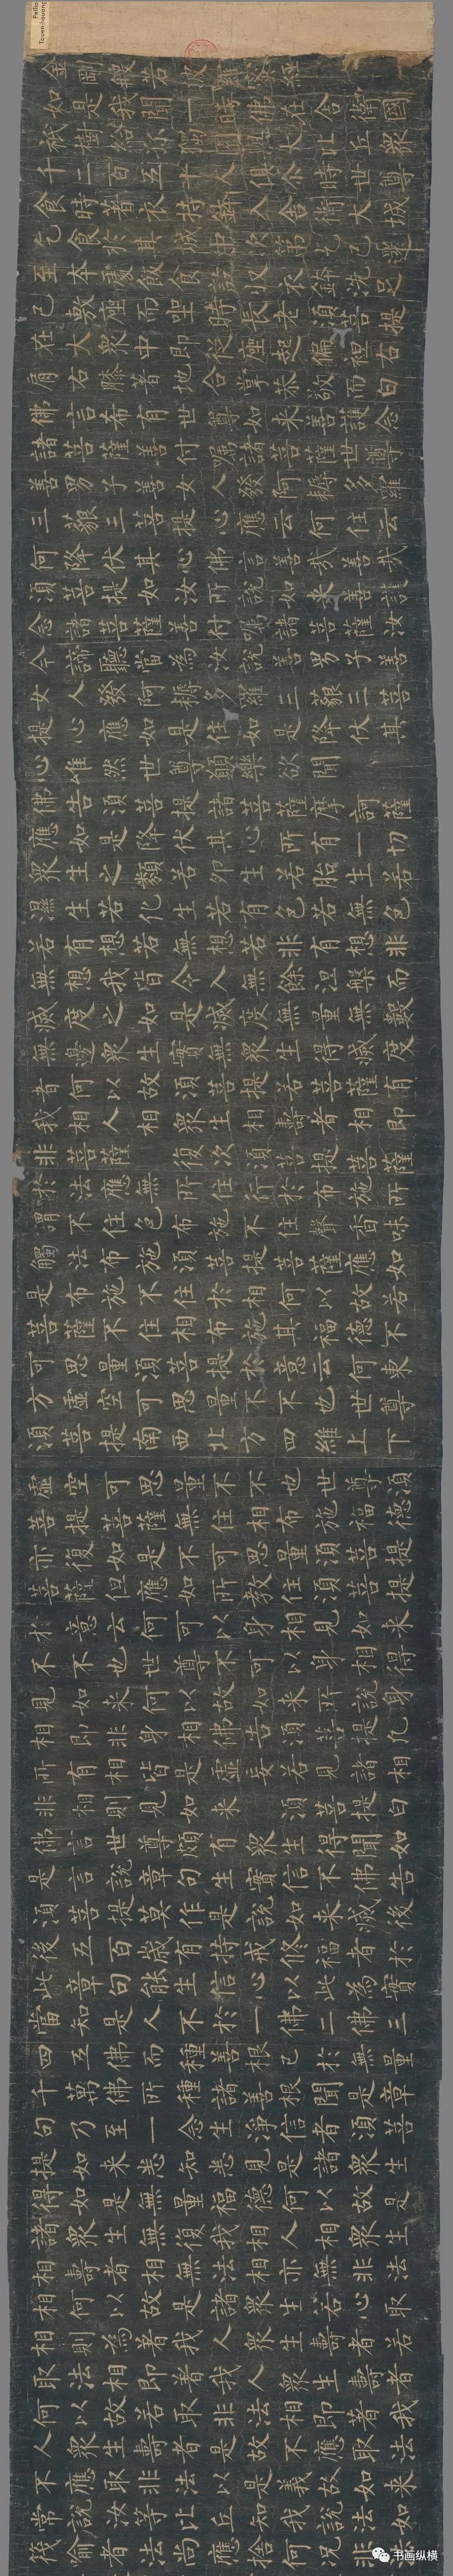 Pellio
Touen-houang
金剛般若波羅蜜經
如是我聞一時佛在舍衛國
祇樹給孤獨園與大比丘衆
千二百五十人俱尒時世尊
食時著衣持鉢入舍衛大城
乞食於其城中次第乞已還
至本處飯食訖收衣鉢洗足
已敷座而坐時長老須菩提
在大衆中即從座起偏袒右
肩右膝著地合掌恭敬而白
佛言希有世尊如來善護念
諸菩薩善付囑諸菩薩世尊
善男子善女人發阿耨多羅
三藐三菩提心應云何住云
何降伏其心佛言善哉善哉
須菩提如汝所說如來善護
念諸菩薩善付囑諸菩薩汝
今諦聽當為汝說善男子善
女人發阿耨多羅三藐三菩
提心應如是住如是降伏其
心唯然世尊願樂欲聞
佛告須菩提諸菩薩摩訶薩
應如是降伏其心所有一切
衆生之類若卵生若胎生若
濕生若化生若有色若無色
若有想若無想若非有想非
無想我皆令入無餘涅槃而
滅度之如是滅度無量無數
無邊衆生實無衆生得滅度
者何以故須菩提若菩薩有
我相人相衆生相壽者相即
非菩薩 復次須菩提菩薩
於法應無所住行於布施所
謂不住色布施不住聲香味
觸法布施須菩提菩薩應如
是布施不住於相何以故若
菩薩不住相布施其福德不
可思量須菩提於意云何東
方虛空可思量不不也世尊
須菩提南西北方四維上下
虛空可思量不不也世尊須
菩提菩薩無住相布施福德
亦復如是不可思量須菩提
菩薩但應如所教住須菩提
於意云何可以身相見如來
不不也世尊不可以身相得
見如來何以故如來所說身
相即非身相佛告須菩提凡
所有相皆是虛妄若見諸相
非相則見如來 須菩提白
佛言世尊頗有衆生得聞如
是言說章句生實信不佛告
須菩提莫作是說如來滅後
後五百歲有持戒修福者於
此章句能生信心以此為實
當知是人不於一佛二佛三
四五佛而種善根已於無量
千萬佛所種諸善根聞是章
句乃至一念生淨信者須菩
提如來悉知悉見是諸衆生
得如是無量福德何以故是
諸衆生無復我相人相衆生
相壽者相無法相亦無非法
相何以故是諸衆生若心取
相則為著我人衆生壽者若
取法相即著我人衆生壽者
何以故若取非法相即著我
人衆生壽者是故不應取法
不應取非法以是義故如來
常說汝等比丘知我說法如
筏喻者法尚應捨何況非法
书画纵横